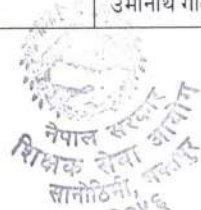 उमानाथ गौ
नेपाल सरकार
शिक्षक सेवा आयोग
सानोठिमी, भक्तपुर